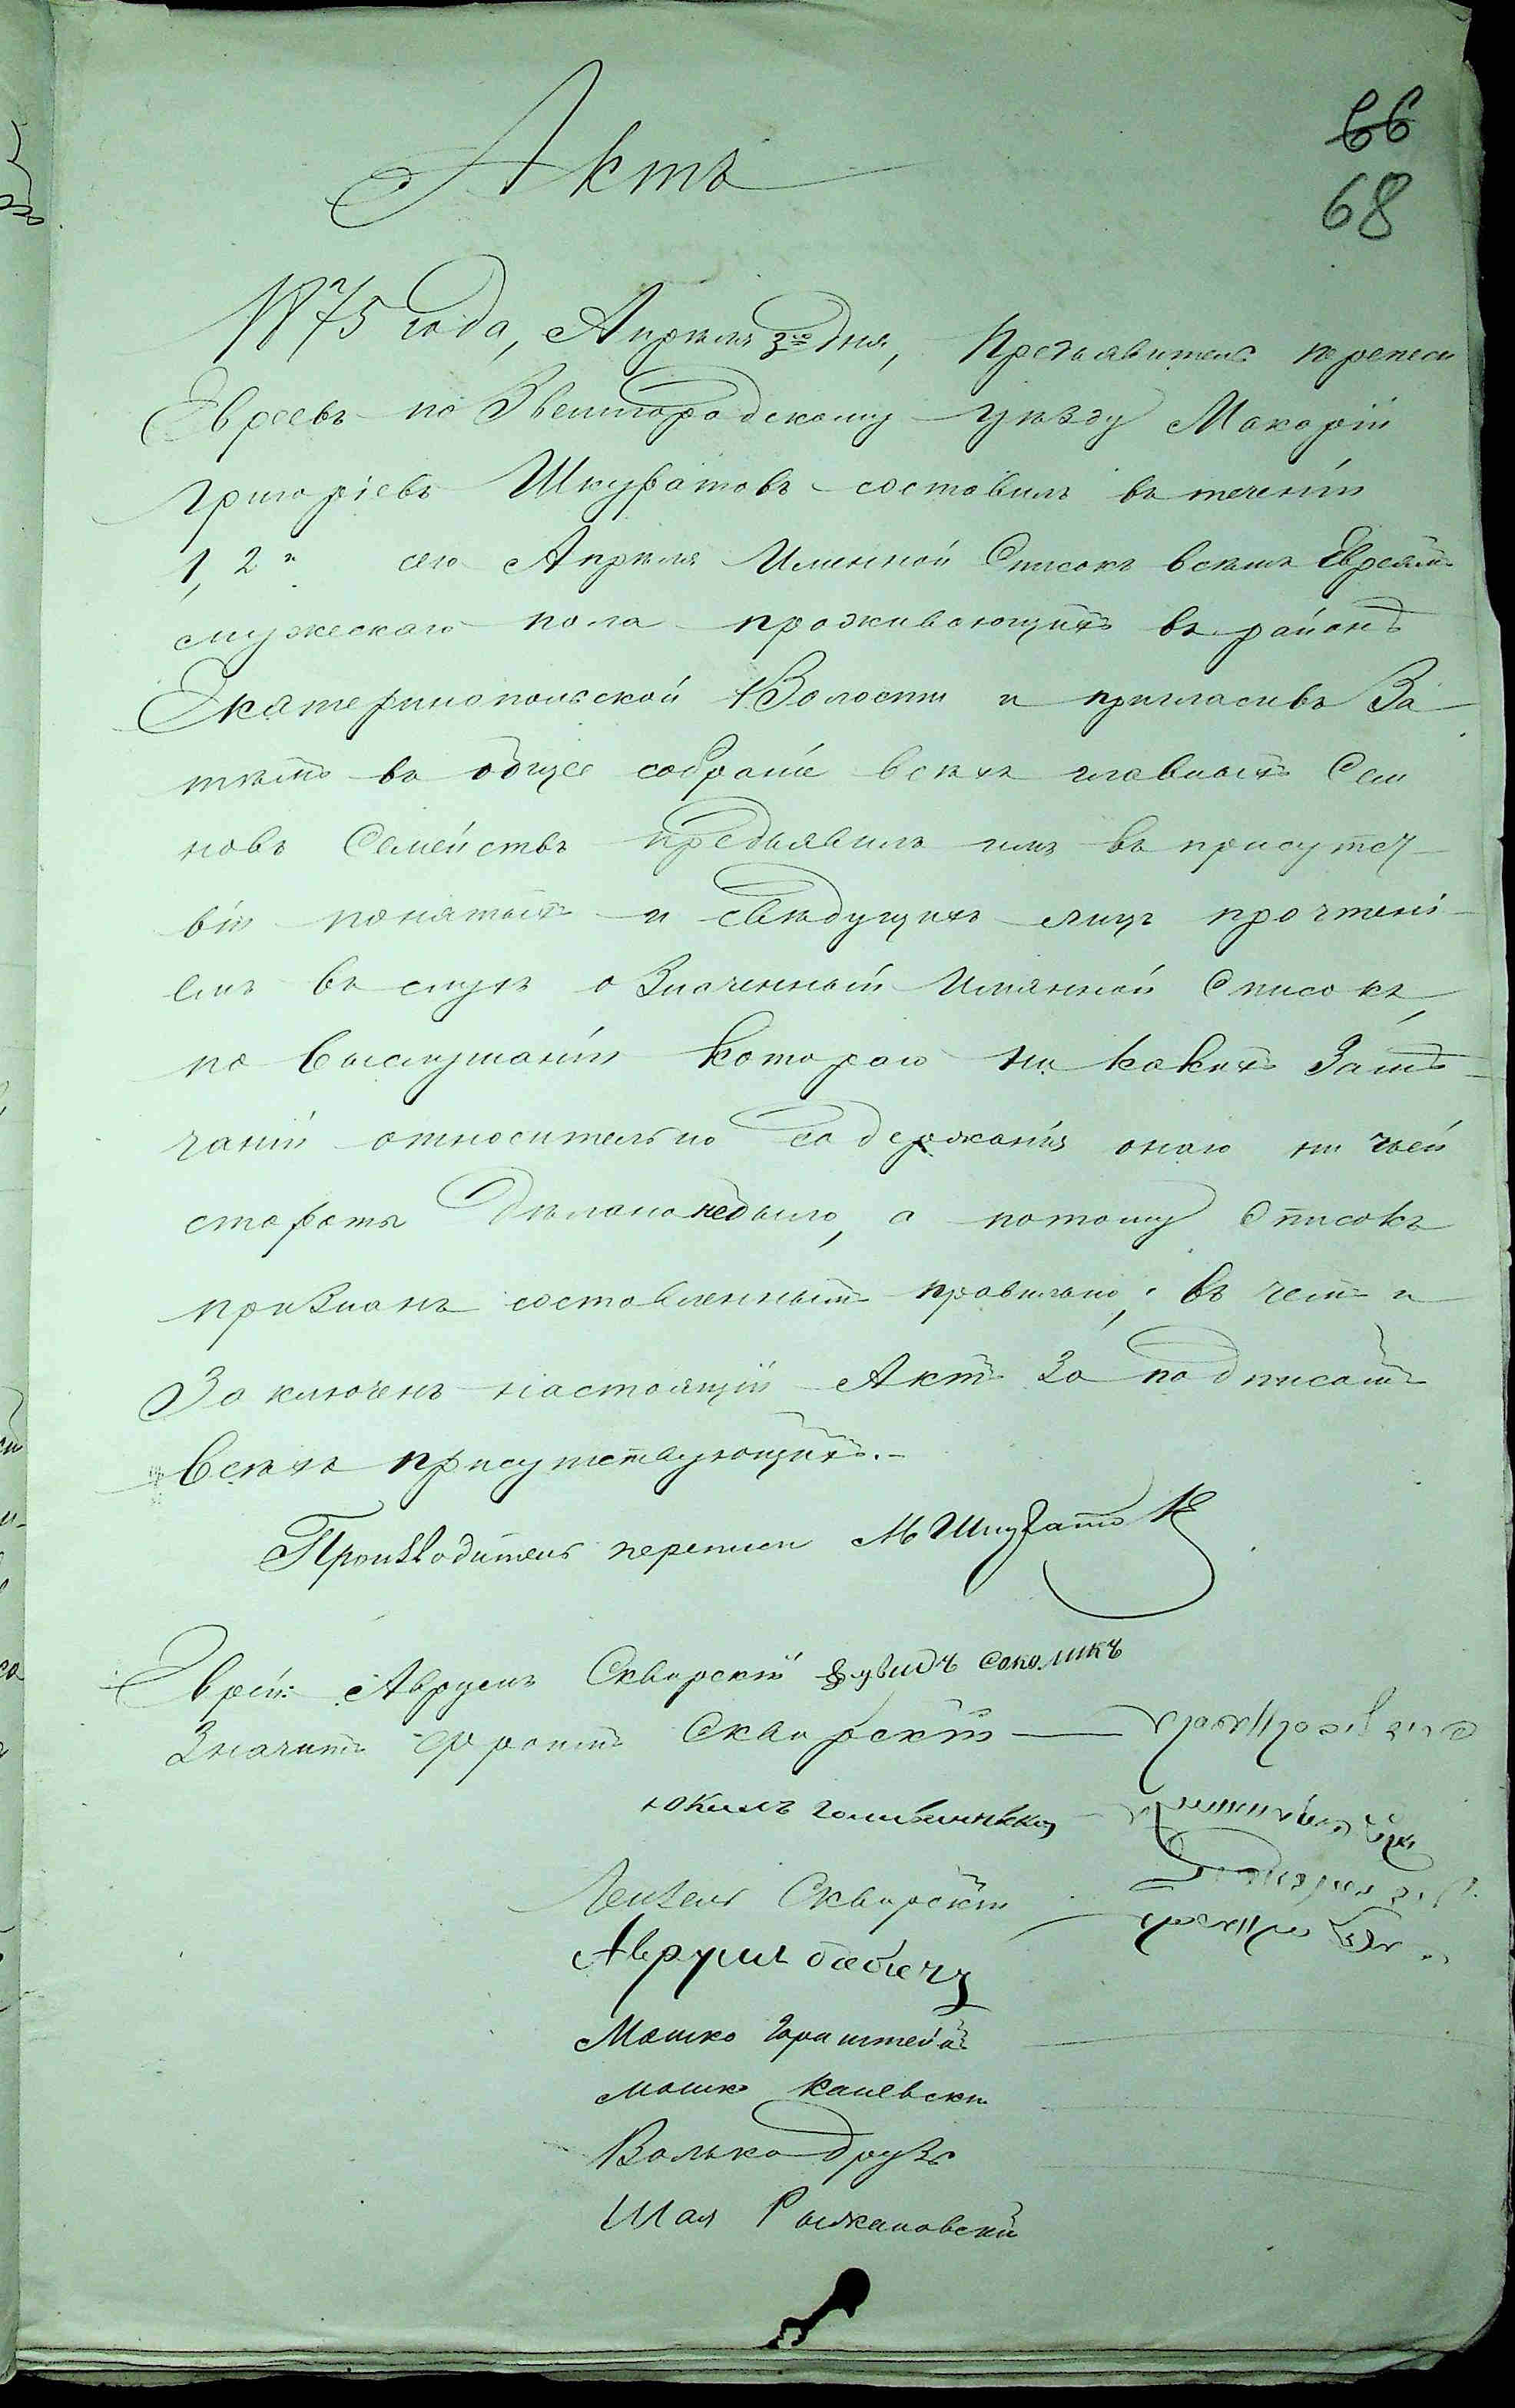 66
68
Актъ
1875 года, Апреля 3го дня, Предъявитель переписи
Евреевъ по Звенигородскому уѣзду Макарій
Григоріевъ Шкуратовъ составилъ въ теченіи
1, 2 и сего Апрѣля Именной Списокъ всѣмъ Евреямъ
мужескаго пола проживающихъ въ районѣ
Екатеринопольской Волости и пригласивъ За
тѣмъ въ общее собраніе всѣхъ главныхъ Сем
новъ Семействъ предъявилъ имъ въ присутст
віи понятыхъ и свѣдущихъ лицъ прочтені
емъ въ слухъ означенный Имянной Списокъ,
по выслушаніи котораго ни какихъ Замѣ
чаній относительно содержанія онаго ни чьей
стороны дѣлано небыло, а потому Списокъ
признанъ составленнымъ правильно; въ чемъ и
Заключенъ настоящій Актъ За подписомъ
всѣхъ присутствующихъ.-
Производитель переписи М Шкуратов
Евреи: Аврумъ Сквирскій Дувидъ Соколикъ
Сквирскій
Юкилъ
Лейзеръ Сквирскій
Аврумъ бабичъ
Мошко Горнштейнъ
Мошко Каневски
Волько Друзь
Шая Рыжановскій